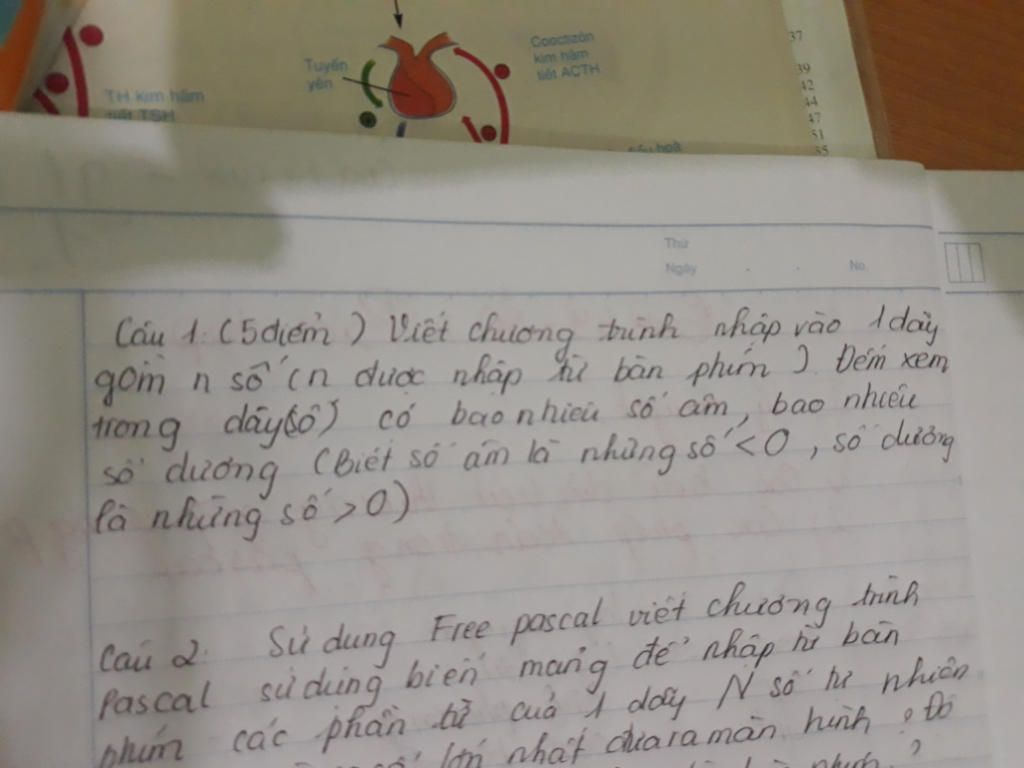 Cooctizôn
kìm hãm
tiết ACTH
Tuyến
yên
TH kìm hãm
tiết TSH
37
39
42
44
47
51
55
Thứ
Ngày . . No.
Câu 1: (5điểm) Viết chương trình nhập vào 1 dãy
gồm n số (n được nhập từ bàn phím). Đếm xem
trong dãy(số) có bao nhiêu số âm, bao nhiêu
số dương (Biết số âm là những số <0, số dương
là những số >0)
Câu 2. Sử dụng Free pascal viết chương trình
Pascal sử dụng biến mảng để nhập từ bàn
phím các phần tử của 1 dãy N số tự nhiên
lớn nhất đưa ra màn hình